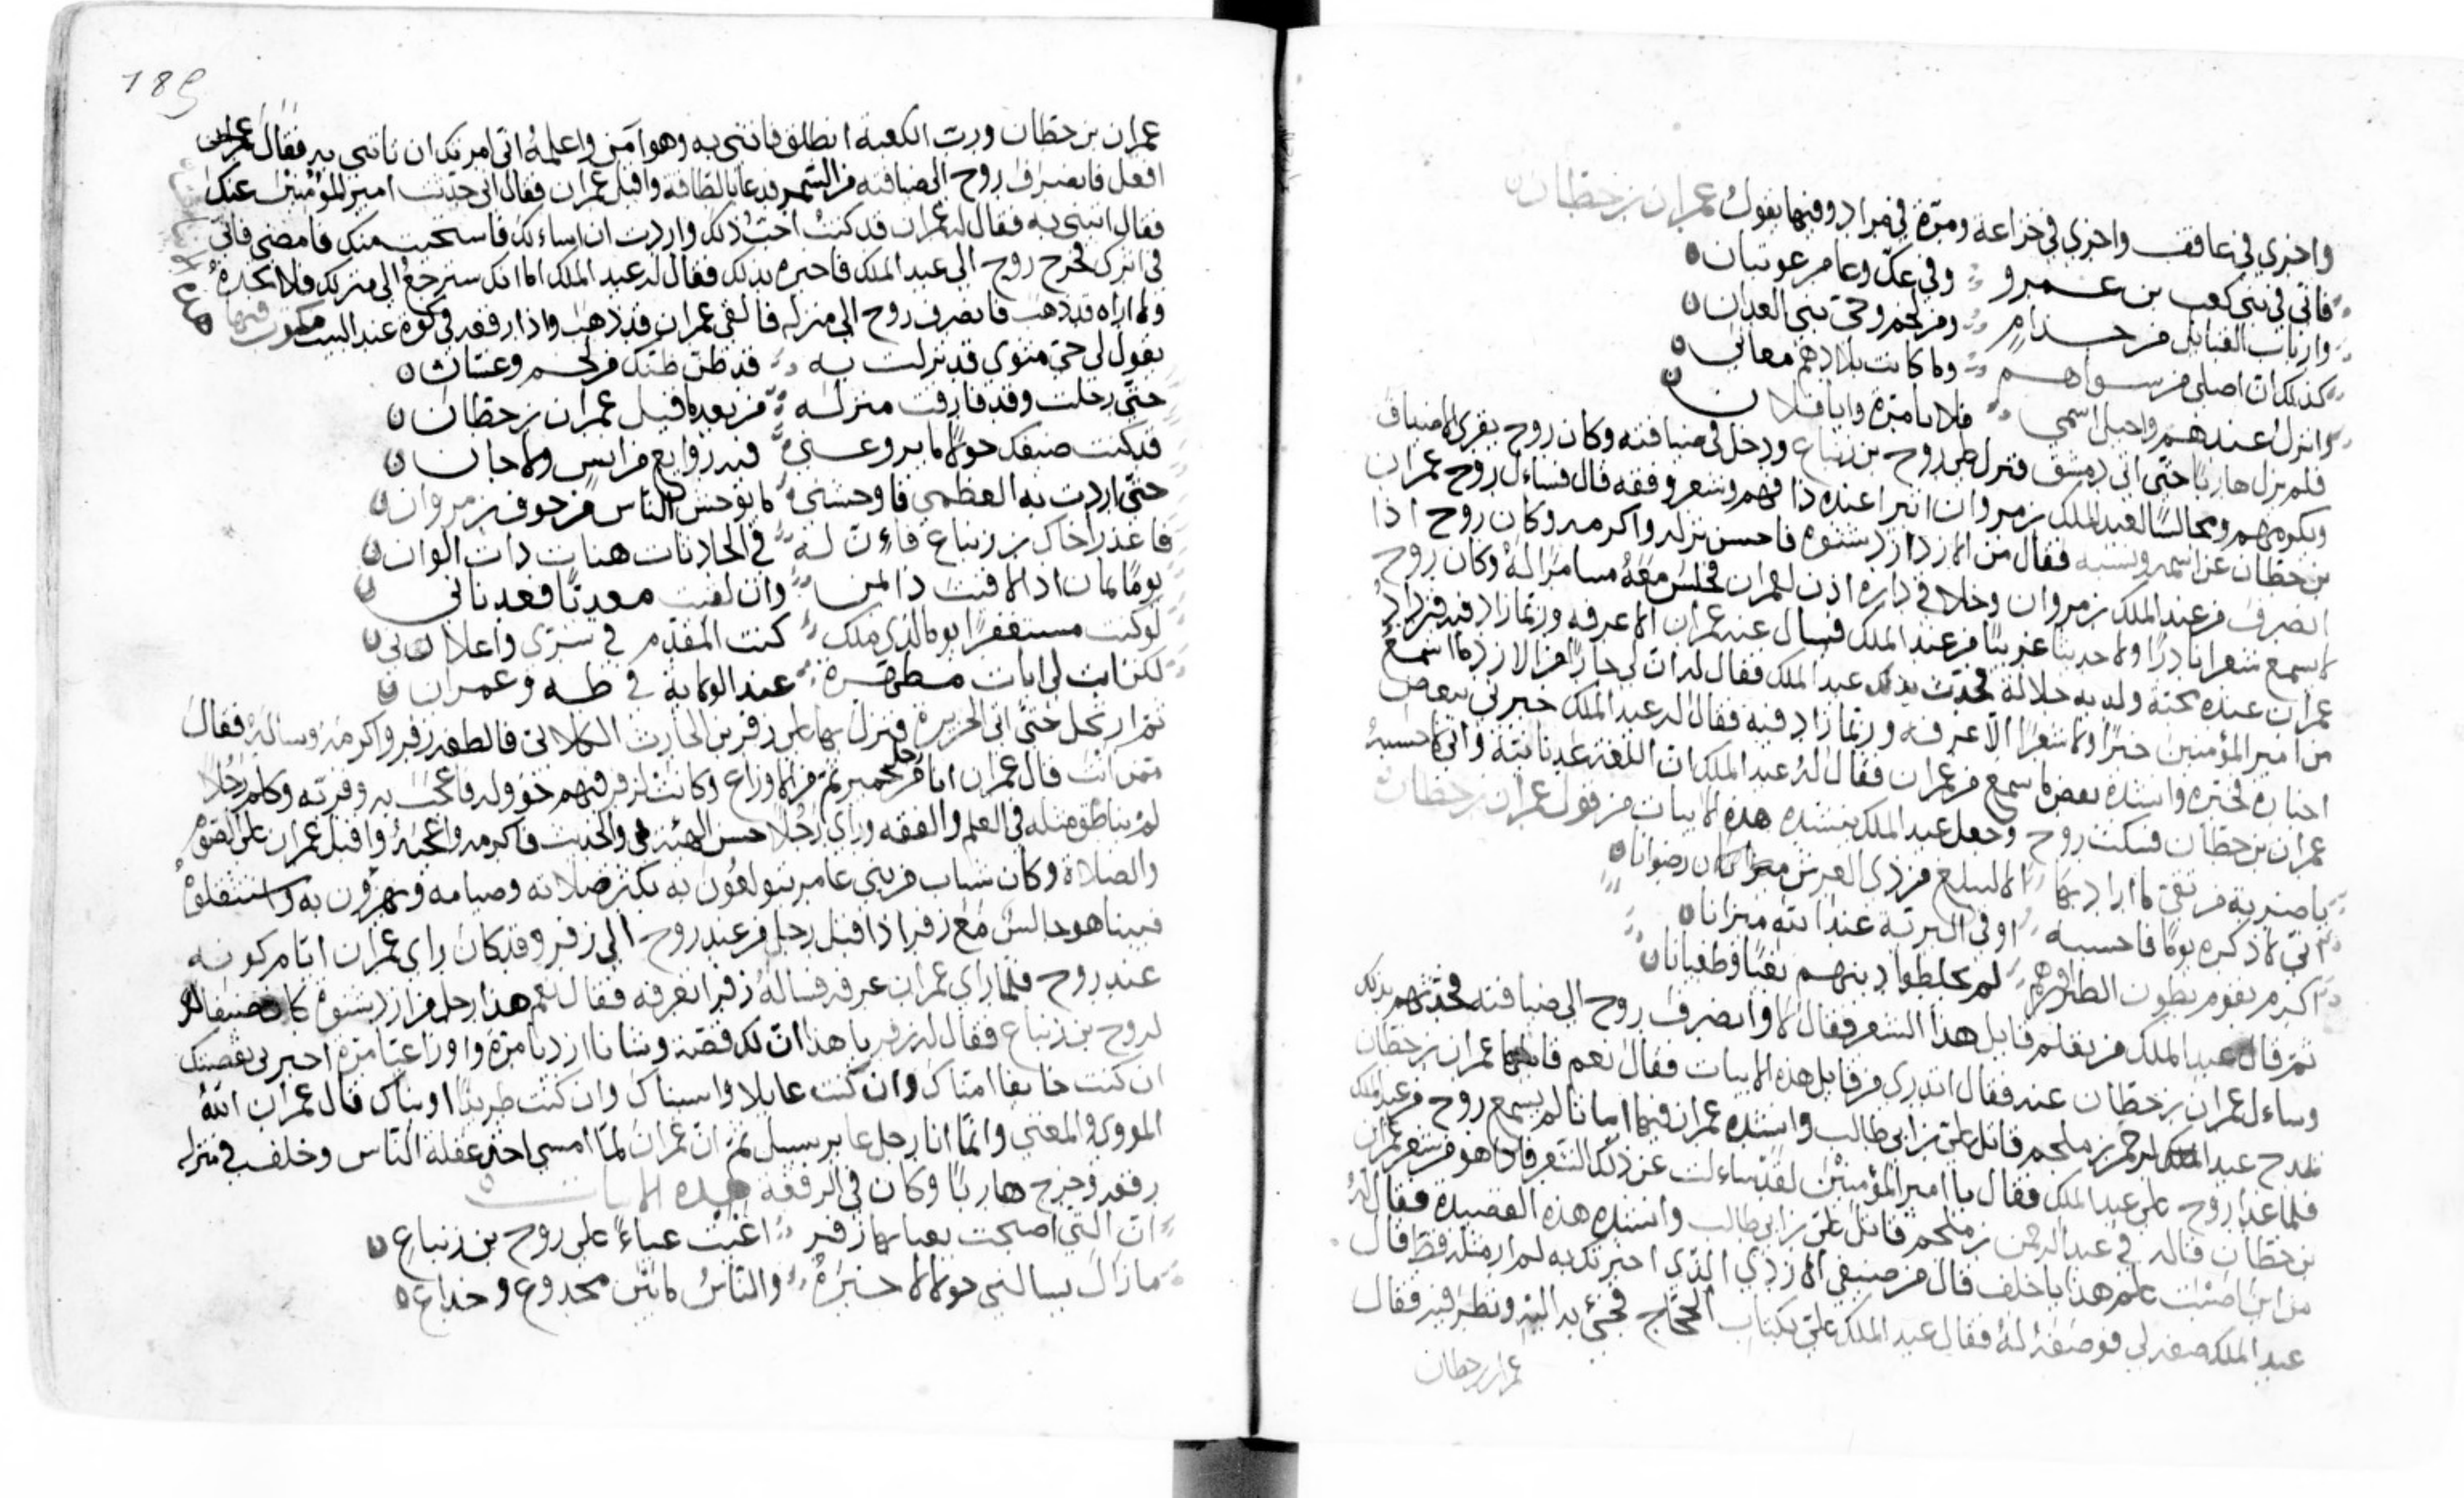 واخري في عاقف واخري في خزاعة ومرة في مراد وفيها يقول عمران بن حطان
فاني في بني كعب بن عمرو وفي عك وعامر عوتبان
وارباب القبايل من جذام ومن لخم وحي بني العدان
كذلك ان اصلي من سواهم وما كانت بلادهم معاني
وانزل عندهم واحيل اسمي فلانا مرة وابا فلان
فلم يزل هاربا حتى اتى دمشق فنزل على روح بن زنباع ودخل في ضيافته وكان روح يقري الاضياف
ويكرمهم ومجالسا لعبد الملك بن مروان اثيرا عنده ذا فهم وشعر وفقه قال فساءل روح عمران
بن حطان عن اسمه ونسبه فقال من الازد ازد شنوه فاحسن نزله واكرمه وكان روح اذا
انصرف من عند الملك بن مروان وخلا في داره اذن لعمران فجلس معه مسامرا له وكان روح
لا يسمع شعرا نادرا ولا حديثا غريبا من عبد الملك فيسال عنه عمران الا عرفه وربما زاد فيه فزاد
عمران عنده محبة ولديه جلالة فحدث بذلك عبد الملك فقال له ان لي جارا من الازد ما اسمع
من امير المؤمنين خبرا ولا شعرا الا عرفه وربما زاد فيه فقال له عبد الملك خبرني ببعض
اخباره فخبره وانشده بعض ما سمع من عمران فقال له عبد الملك ان اللغة عدنانية واني لاحسبه
عمران بن حطان فسكت روح وجعل عبد الملك ينشده هذه الابيات من قول عمران بن حطان
يا ضربة من تقي ما اراد بها الا ليبلغ من ذي العرش رضوانا
اني لاذكره يوما فاحسبه اوفى البرية عند الله ميزانا
اكرم بقوم بطون الطير لم يخلطوا دينهم بغيا وطغيانا
ثم قال عبد الملك من يعلم قايل هذا الشعر فقال لا وانصرف روح الى ضيافته فحدثهم بذلك
وساءل عمران بن حطان عنه فقال اتدري من قايل هذه الابيات فقال نعم قايلها عمران بن حطان
يمدح عبد الرحمن بن ملجم قاتل علي بن ابي طالب وانشده عمران فيها ابياتا لم يسمع روح من عبد الملك
فلما غدا روح على عبد الملك فقال يا امير المؤمنين لقد ساءلت عن ذلك الشعر فاذا هو من شعر عمران
بن حطان قاله في عبد الرحمن بن ملجم قاتل علي بن ابي طالب وانشده هذه القصيدة فقال له
من اين اصبت علم هذا يا خلف قال من ضيفي الازدي الذي اخبرتك به لم ار مثله قط قال
عبد الملك صفه لي فوصفه له فقال عبد الملك علي بكتاب الحجاج فجيء به اليه ونظر فيه فقال
عمران بن حطان
189
عمران بن حطان ورب الكعبة انطلق فائتني به وهو آمن واعلمه اني امرتك ان تاتيني به فقال
افعل فانصرف روح الى ضيافته من السمر فدعا بالطافه واقبل عمران فقال اني حدثت امير المؤمنين عنك
فقال ائتني به فقال له عمران قد كنت احب ذلك واردت ان اساءلك فاستحيت منك فامضي فاني
في اثرك فخرج روح الى عبد الملك فاخبره بذلك فقال له عبد الملك اما انك سترجع الى منزلك فلا تجده
ولا اراه قد ذهب فانصرف روح الى منزله فالفى عمران قد ذهب واذا رقعة في كوة عند البيت مكتوب فيها
يقول لي حي مثوي قد نزلت به قد ظن ظنك من لخم وغسان
حتى رحلت وقد فارقت منزله من بعد ما قيل عمران بن حطان
قد كنت ضيفك حولا ما يروعني فيه روايع من انس ولا جان
حتى اردت به العظمى فاوحشني ما يوحش الناس من خوف بن مروان
فاعذر اخاك بن زنباع فاءن له في الحادثات هنات ذات الوان
يوما يمان اذا لاقيت ذا يمن وان لقيت معديا فعدناني
لو كنت مستغفرا يوما لذي ملك كنت المقدم في سري واعلاني
لكن ابت لي ايات مطهرة عند الولاية في طه وعمران
ثم ارتحل حتى اتى الجزيرة فنزل بها على زفر بن الحارث الكلابي فالطفه زفر واكرمه وساله فقال
ممن انت قال عمران انا رجل من حمير ثم من الاوزاع وكانت لزفر فيهم خؤولة فاعجب به وقربه وكلم رجلا
لم يناطق مثله في العلم والفقه وراى رجلا حسن الهيئة والحديث فاكرمه واعجبه واقبل عمران على الصوم
والصلاة وكان شباب من بني عامر يتولعون به بكثر صلاته وصيامه ويهزؤن به
فبينا هو جالس مع زفر اذ اقبل رجل من عند روح الى زفر وقد كان راى عمران ايام كونه
عند روح فلما راى عمران عرفه فساله زفر اتعرفه فقال نعم هذا رجل من ازد شنوه كان ضيفا
لروح بن زنباع فقال له زفر يا هذا ان لك قصة وشانا ازديا مرة واوزاعيا مرة اخبرني بقصتك
ان كنت خايفا امناك وان كنت عايلا واسيناك وان كنت طريدا اويناك قال عمران الله
المووي والمغني وانما انا رجل عابر سبيل ثم ان عمران لما امسى اخذ غفلة الناس وخلف في منزله
رقعة وخرج هاربا وكان في الرقعة هذه الابيات
ان التي اصبحت يعيا بها زفر اعيت عياء على روح بن زنباع
ما زال يسالني حولا لاخبره والناس ما بين مخدوع وخداع